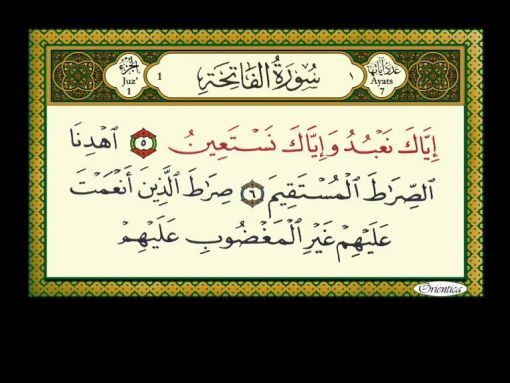 الجزء
Juz'
1
1
سُورَةُ الفَاتِحَةِ
١
عدد آياتها
Ayats
7
إِيَّاكَ نَعْبُدُ وَإِيَّاكَ نَسْتَعِينُ ٥ اهْدِنَا
الصِّرَاطَ الْمُسْتَقِيمَ ٦ صِرَاطَ الَّذِينَ أَنْعَمْتَ
عَلَيْهِمْ غَيْرِ الْمَغْضُوبِ عَلَيْهِمْ
Orientica